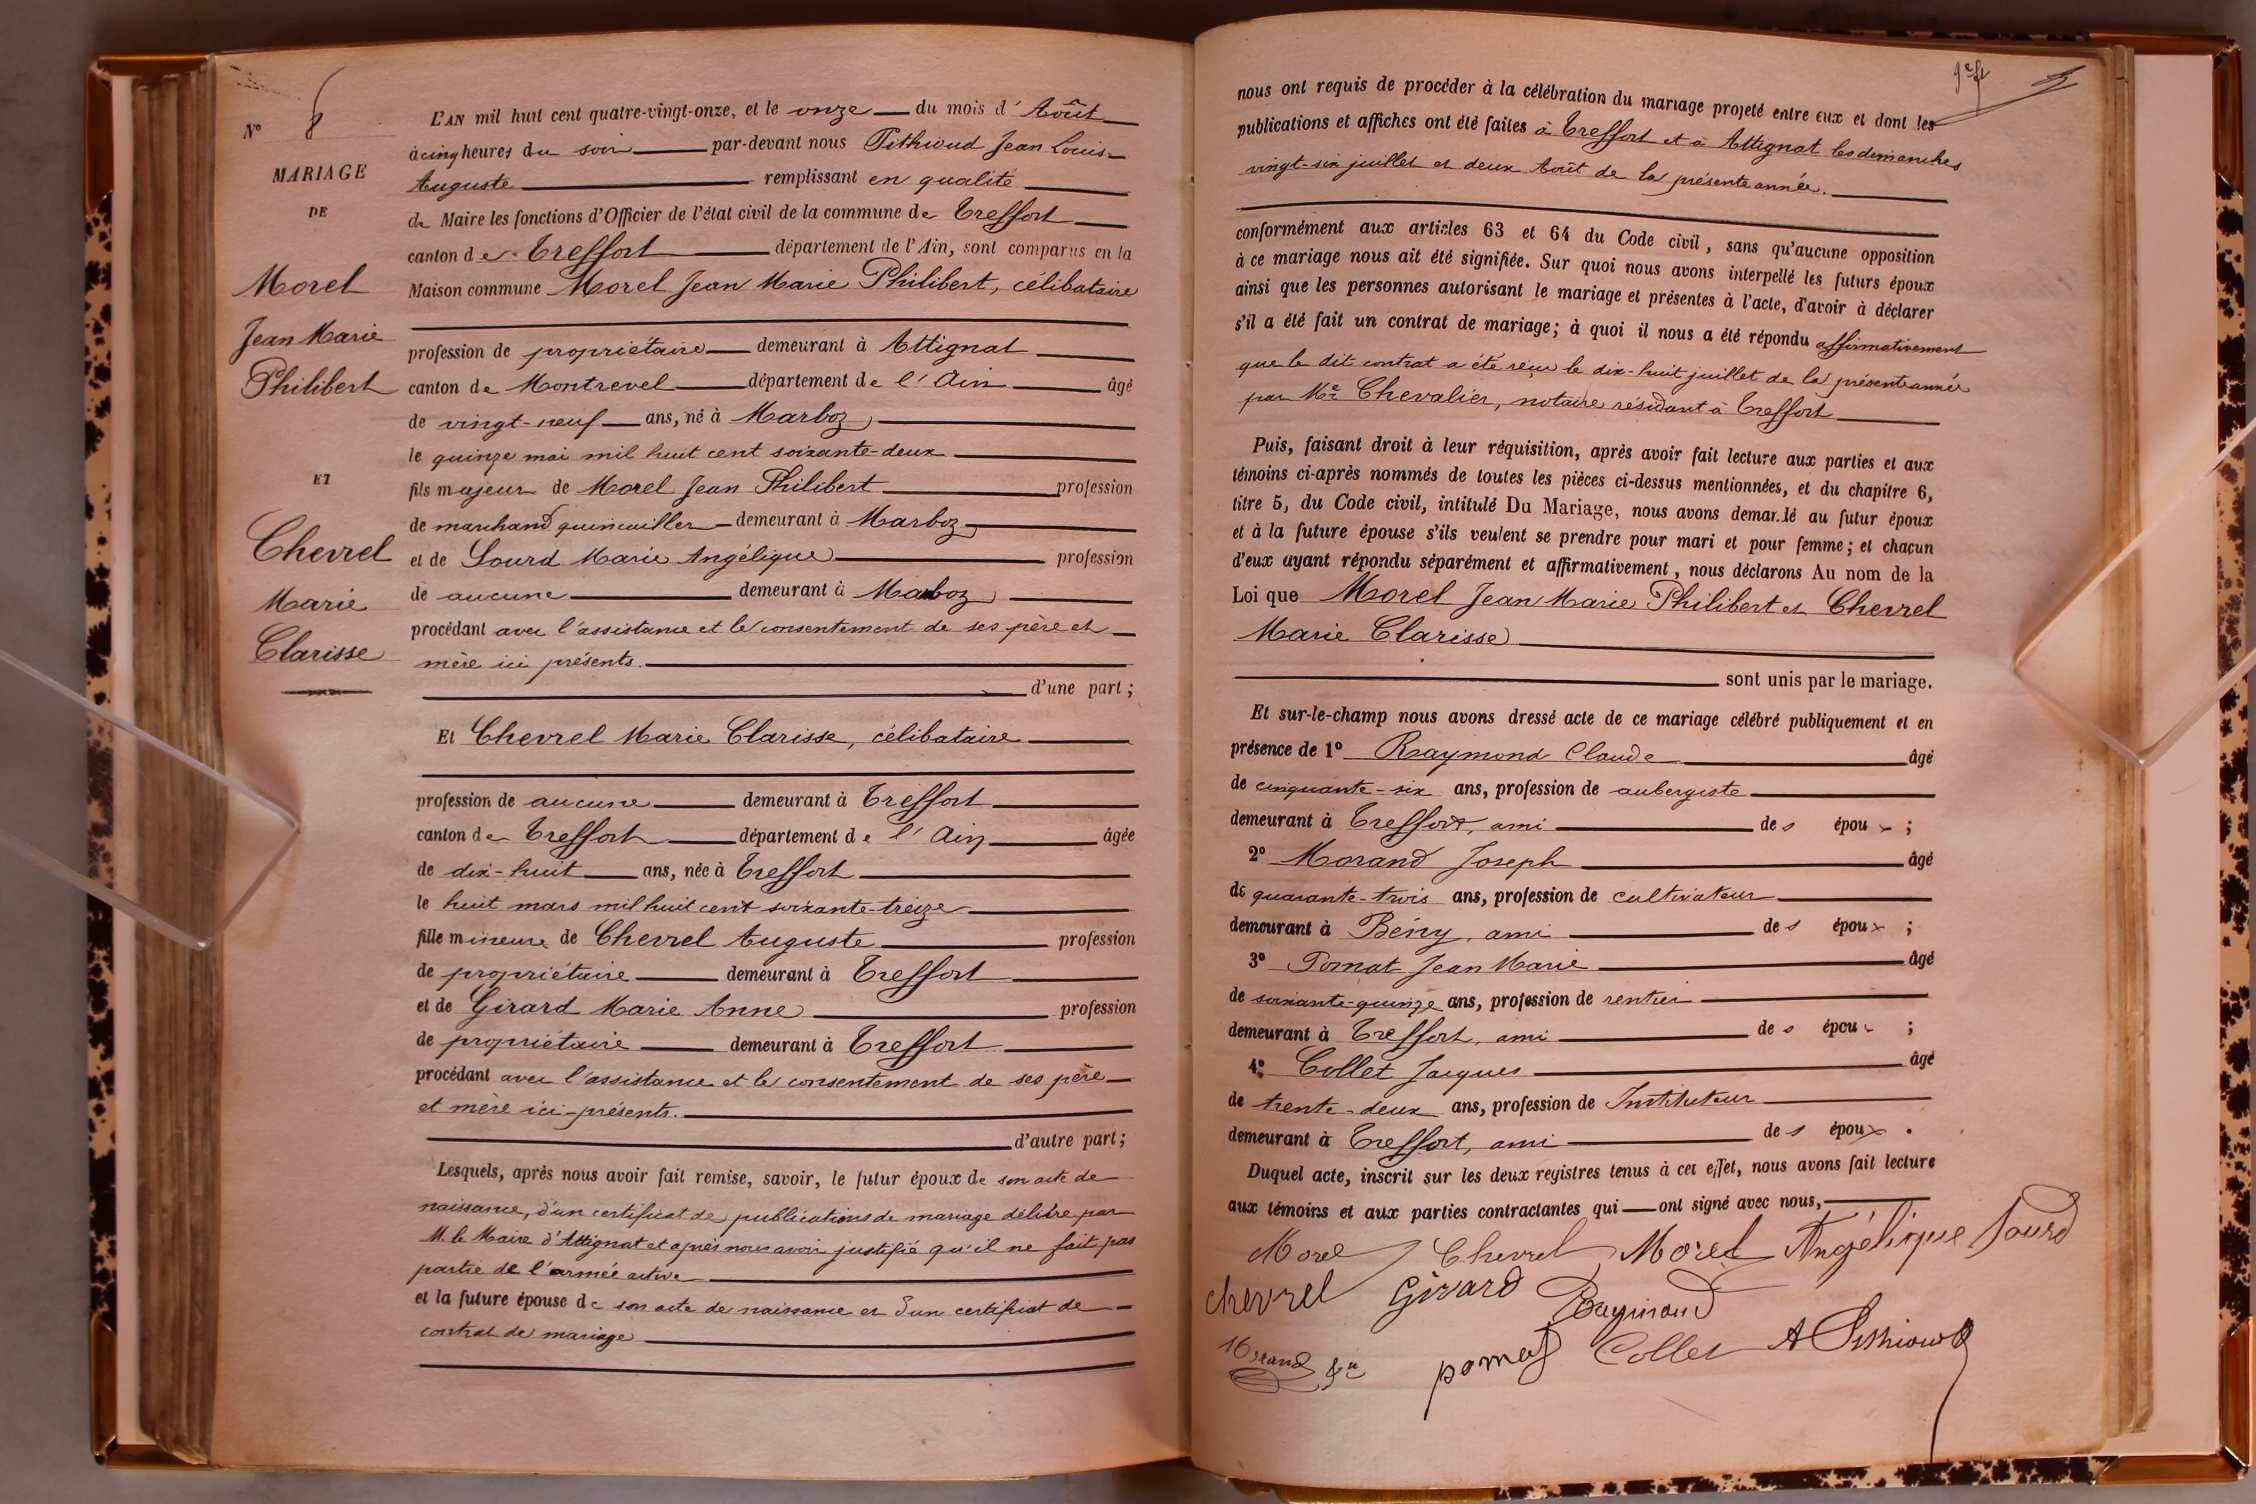 N° 8
MARIAGE
DE
Morel
Jean Marie
Philibert
ET
Chevrel
Marie
Clarisse
L'AN mil huit cent quatre-vingt-onze, et le onze du mois d'Août
à cinq heures du soir par-devant nous Pithioud Jean Louis
Auguste remplissant en qualité
de Maire les fonctions d'Officier de l'état civil de la commune de Treffort
canton de Treffort département de l'Ain, sont comparus en la
Maison commune Morel Jean Marie Philibert, célibataire
profession de propriétaire demeurant à Attignat
canton de Montrevel département de l'Ain âgé
de vingt-neuf ans, né à Marboz
le quinze mai mil huit cent soixante-deux
fils majeur de Morel Jean Philibert profession
de marchand quincailler demeurant à Marboz
et de Sourd Marie Angélique profession
de aucune demeurant à Marboz
procédant avec l'assistance et le consentement de ses père et
mère ici présents.
d'une part ;
Et Chevrel Marie Clarisse, célibataire
profession de aucune demeurant à Treffort
canton de Treffort département de l'Ain âgée
de dix-huit ans, née à Treffort
le huit mars mil huit cent soixante-treize
fille mineure de Chevrel Auguste profession
de propriétaire demeurant à Treffort
et de Girard Marie Anne profession
de propriétaire demeurant à Treffort
procédant avec l'assistance et le consentement de ses père
et mère ici-présents.
d'autre part ;
Lesquels, après nous avoir fait remise, savoir, le futur époux de son acte de
naissance, d'un certificat de publications de mariage délivré par
M. le Maire d'Attignat et après nous avoir justifié qu'il ne fait pas
partie de l'armée active
et la future épouse de son acte de naissance et d'un certificat de
contrat de mariage
nous ont requis de procéder à la célébration du mariage projeté entre eux et dont les
publications et affiches ont été faites à Treffort et à Attignat les dimanches
vingt-six juillet et deux Août de la présente année.
conformément aux articles 63 et 64 du Code civil, sans qu'aucune opposition
à ce mariage nous ait été signifiée. Sur quoi nous avons interpellé les futurs époux
ainsi que les personnes autorisant le mariage et présentes à l'acte, d'avoir à déclarer
s'il a été fait un contrat de mariage; à quoi il nous a été répondu affirmativement
que le dit contrat a été reçu le dix-huit juillet de la présente année
par Me Chevalier, notaire résidant à Treffort
Puis, faisant droit à leur réquisition, après avoir fait lecture aux parties et aux
témoins ci-après nommés de toutes les pièces ci-dessus mentionnées, et du chapitre 6,
titre 5, du Code civil, intitulé Du Mariage, nous avons demandé au futur époux
et à la future épouse s'ils veulent se prendre pour mari et pour femme; et chacun
d'eux ayant répondu séparément et affirmativement, nous déclarons Au nom de la
Loi que Morel Jean Marie Philibert et Chevrel
Marie Clarisse
sont unis par le mariage.
Et sur-le-champ nous avons dressé acte de ce mariage célébré publiquement et en
présence de 1° Raymond Claude âgé
de cinquante-six ans, profession de aubergiste
demeurant à Treffort, ami des époux ;
2° Morand Joseph âgé
de quarante-trois ans, profession de cultivateur
demeurant à Bény, ami des époux ;
3° Pomat Jean Marie âgé
de soixante-quinze ans, profession de rentier
demeurant à Treffort, ami des époux ;
4° Collet Jacques âgé
de trente-deux ans, profession de Instituteur
demeurant à Treffort, ami des époux .
Duquel acte, inscrit sur les deux registres tenus à cet effet, nous avons fait lecture
aux témoins et aux parties contractantes qui ont signé avec nous,
Morel Chevrel Morel Angélique Sourd
chevrel Girard Raymond
Morand pomat Collet A Pithioud